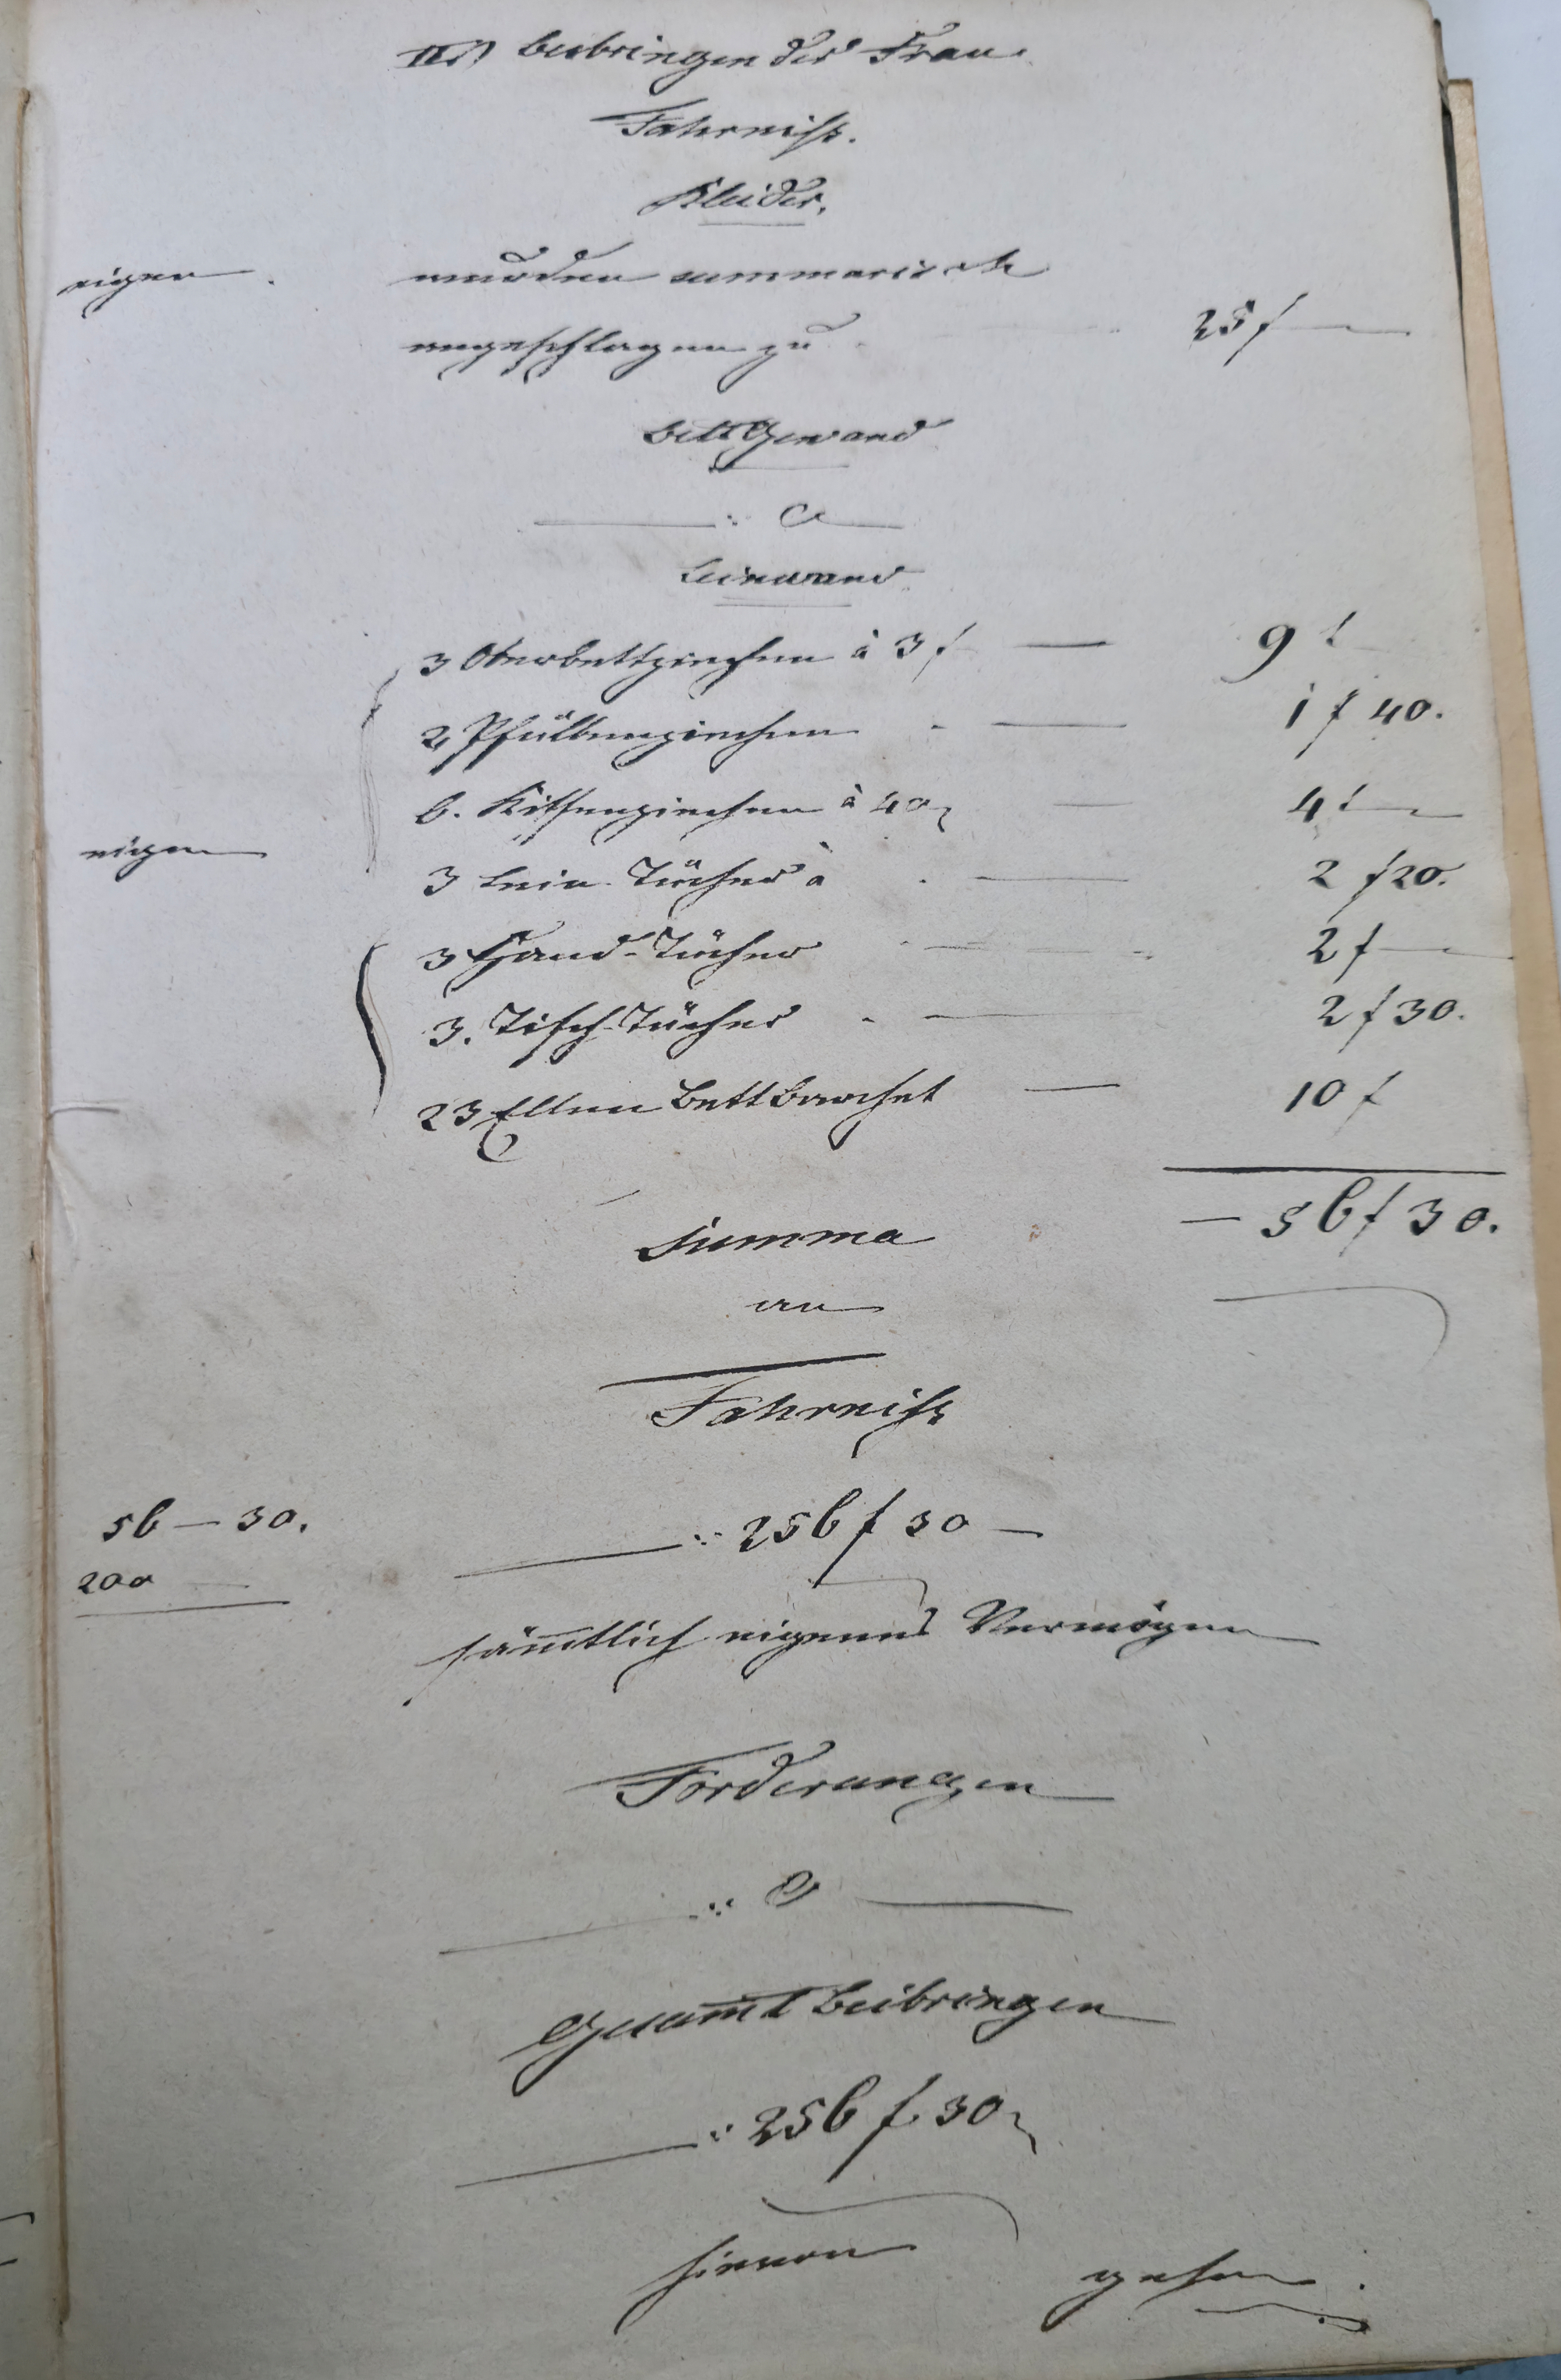 II.) Beibringen der Frau.
Fahrniß.
Kleider.
eigen . wurden summarisch
angeschlagen zu 25 f —
Bettgewand
—— : O ——
Leinwand
3 Oberbettziechen à 3 f — 9 f
2 Pfülbenziechen — 1 f 40.
6. Kissenziechen à 40 — 4 f —
eigen 3 Lein-Tücher à — 2 f 20.
3 Hand-Tücher — 2 f —
3. Tisch-Tücher — 2 f 30.
23 Ellen Bett Barchet — 10 f
Summa — 56 f 30.
an
Fahrniß
56 — 30. —— : 256 f 30 —
200 —
sam̄tlich eigenes Vermögen
Forderungen
—— : O ——
Gesam̄t Beibringen
—— : 256 f. 30
hievon gehen .